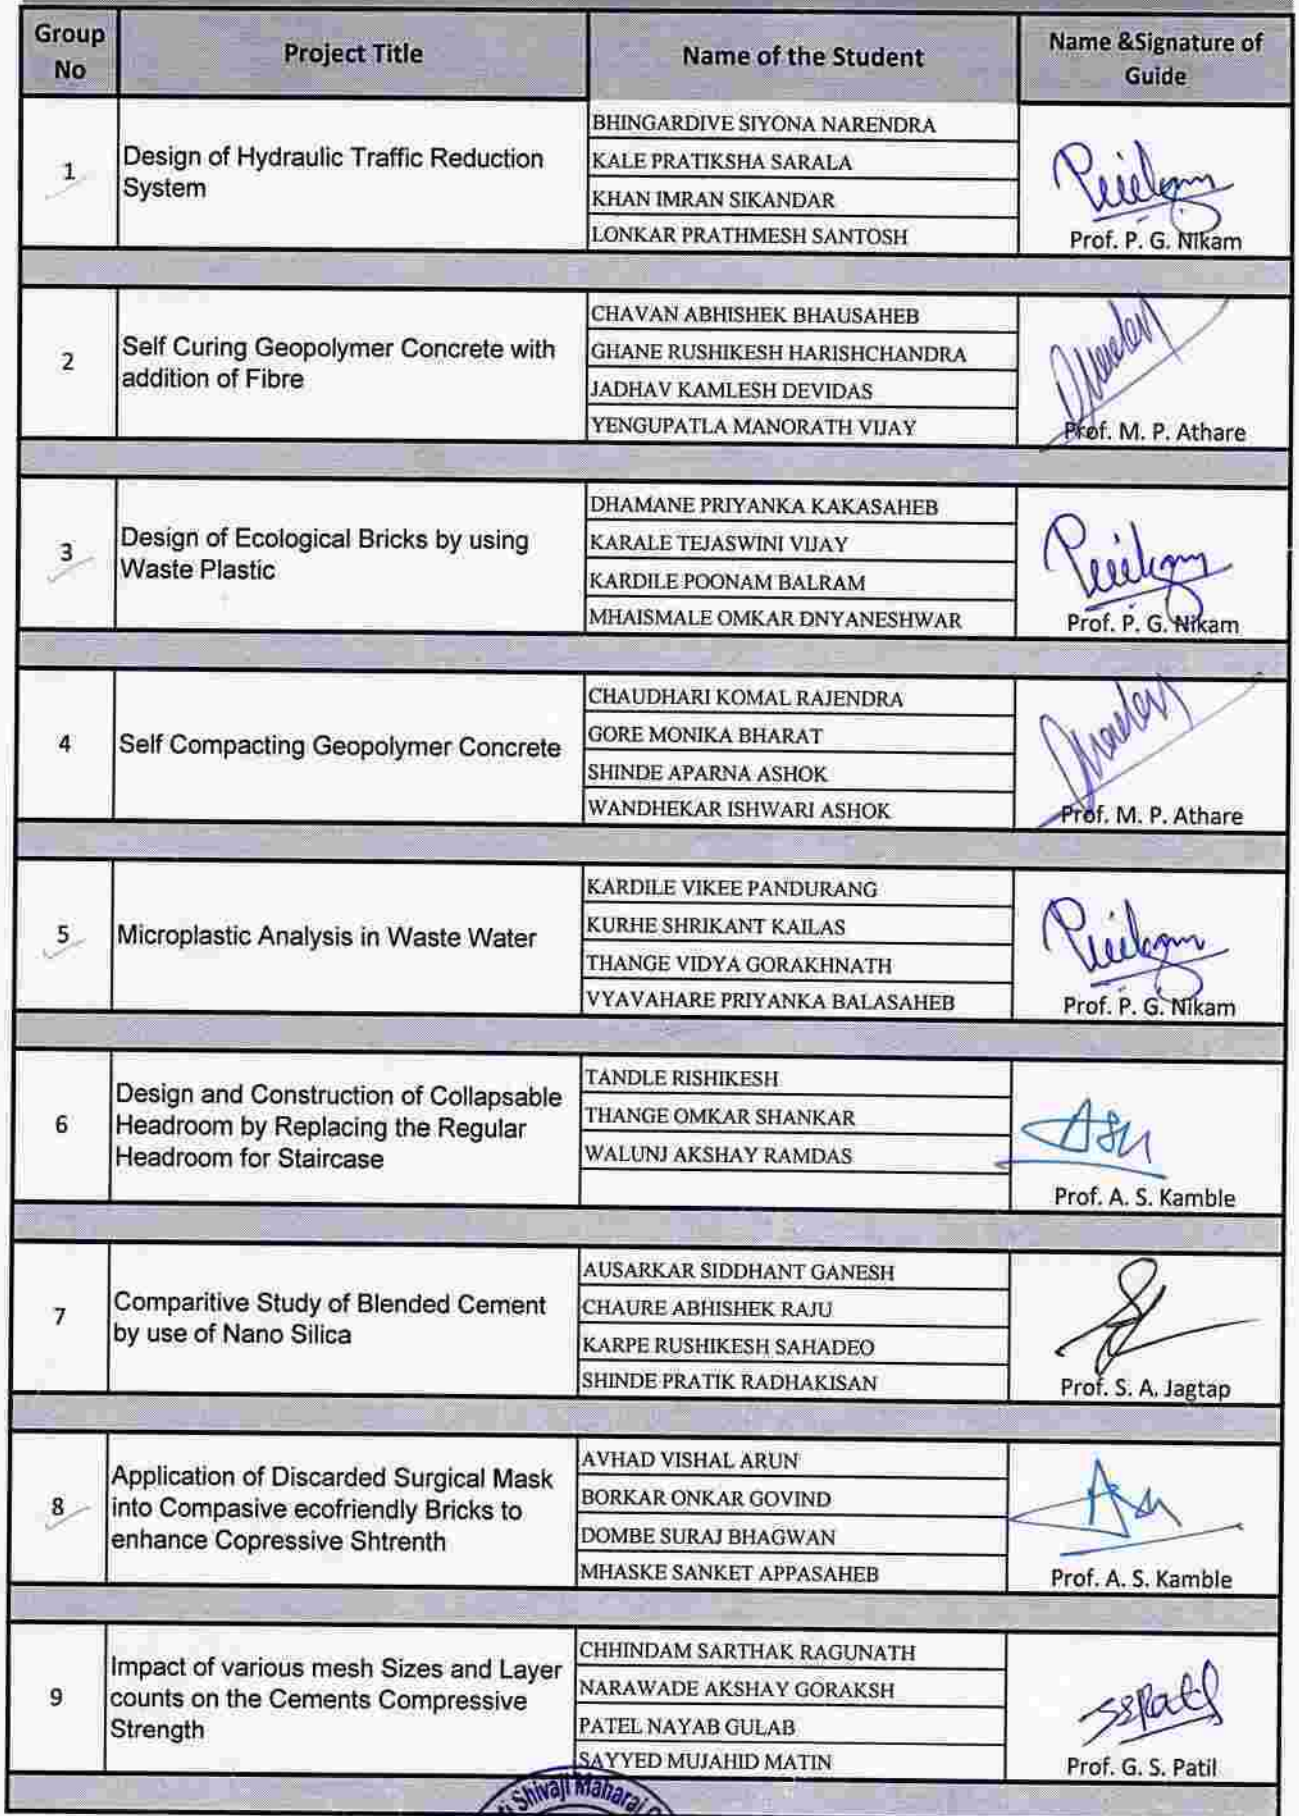 Group No
Project Title
Name of the Student
Name &Signature of Guide
1
Design of Hydraulic Traffic Reduction
System
BHINGARDIVE SIYONA NARENDRA
KALE PRATIKSHA SARALA
KHAN IMRAN SIKANDAR
LONKAR PRATHMESH SANTOSH
Prof. P. G. Nikam
2
Self Curing Geopolymer Concrete with
addition of Fibre
CHAVAN ABHISHEK BHAUSAHEB
GHANE RUSHIKESH HARISHCHANDRA
JADHAV KAMLESH DEVIDAS
YENGUPATLA MANORATH VIJAY
Prof. M. P. Athare
3
Design of Ecological Bricks by using
Waste Plastic
DHAMANE PRIYANKA KAKASAHEB
KARALE TEJASWINI VIJAY
KARDILE POONAM BALRAM
MHAISMALE OMKAR DNYANESHWAR
Prof. P. G. Nikam
4
Self Compacting Geopolymer Concrete
CHAUDHARI KOMAL RAJENDRA
GORE MONIKA BHARAT
SHINDE APARNA ASHOK
WANDHEKAR ISHWARI ASHOK
Prof. M. P. Athare
5
Microplastic Analysis in Waste Water
KARDILE VIKEE PANDURANG
KURHE SHRIKANT KAILAS
THANGE VIDYA GORAKHNATH
VYAVAHARE PRIYANKA BALASAHEB
Prof. P. G. Nikam
6
Design and Construction of Collapsable
Headroom by Replacing the Regular
Headroom for Staircase
TANDLE RISHIKESH
THANGE OMKAR SHANKAR
WALUNJ AKSHAY RAMDAS
Prof. A. S. Kamble
7
Comparitive Study of Blended Cement
by use of Nano Silica
AUSARKAR SIDDHANT GANESH
CHAURE ABHISHEK RAJU
KARPE RUSHIKESH SAHADEO
SHINDE PRATIK RADHAKISAN
Prof. S. A. Jagtap
8
Application of Discarded Surgical Mask
into Compasive ecofriendly Bricks to
enhance Copressive Shtrenth
AVHAD VISHAL ARUN
BORKAR ONKAR GOVIND
DOMBE SURAJ BHAGWAN
MHASKE SANKET APPASAHEB
Prof. A. S. Kamble
9
Impact of various mesh Sizes and Layer
counts on the Cements Compressive
Strength
CHHINDAM SARTHAK RAGUNATH
NARAWADE AKSHAY GORAKSH
PATEL NAYAB GULAB
SAYYED MUJAHID MATIN
SSPatil
Prof. G. S. Patil
Shivaji Maharaj